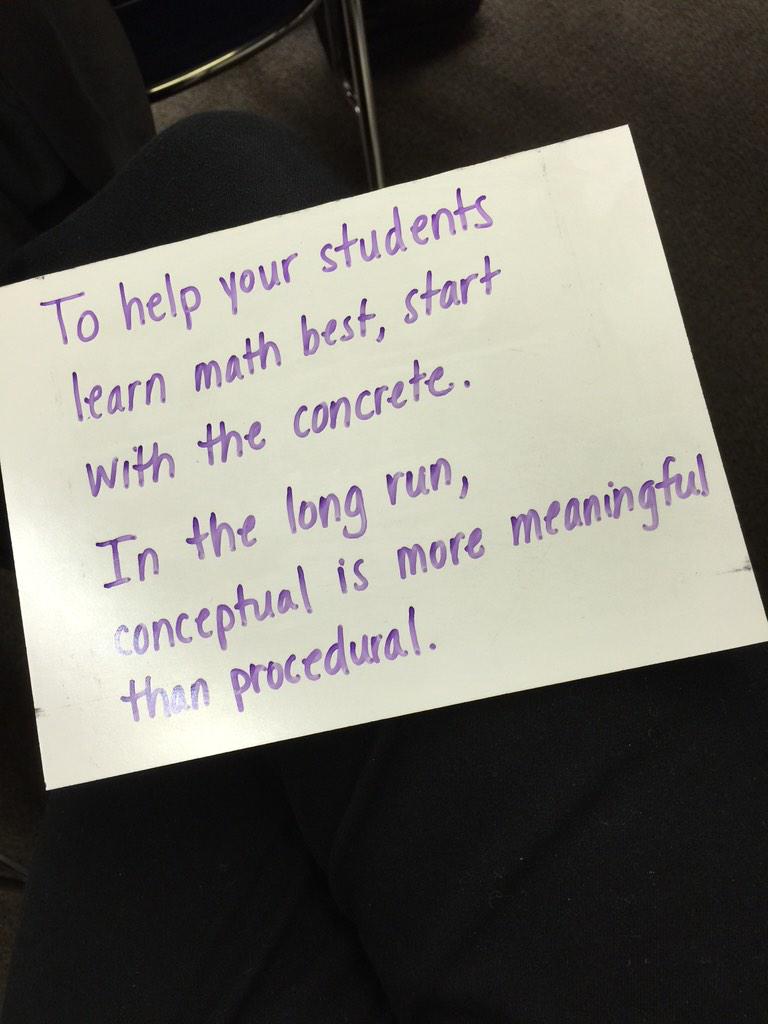 To help your students
learn math best, start
with the concrete.
In the long run,
conceptual is more meaningful
than procedural.